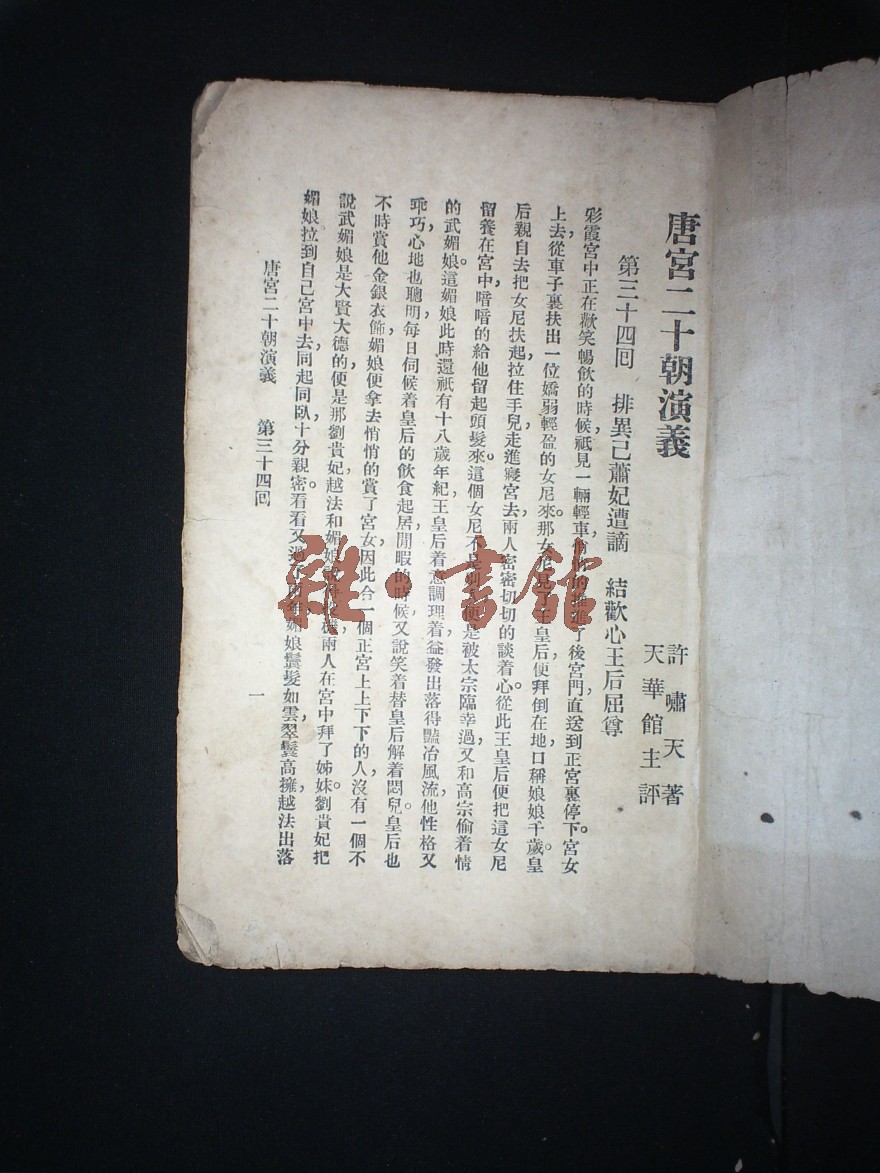 唐宮二十朝演義
許嘯天著
天華館主評
第三十四回　排異己蕭妃遭謫　結歡心王后屈尊
彩霞宮中正在歡笑暢飲的時候，祇見一輛輕車，的推進了後宮門，直送到正宮裏停下。宮女
上去，從車子裏扶出一位嬌弱輕盈的女尼來。那女尼見了王皇后，便拜倒在地，口稱娘娘千歲。皇
后親自去把女尼扶起，拉住手兒，走進寢宮去，兩人密密切切的談着心。從此王皇后便把這女尼
留養在宮中，暗暗的給他留起頭髮來。這個女尼不是別便是被太宗臨幸過，又和高宗偷着情
的武媚娘。這媚娘此時還祇有十八歲年紀，王皇后着意調理着，益發出落得豔冶風流，他性格又
乖巧，心地也聰明，每日伺候着皇后的飲食起居，閒暇的時候，又說笑着替皇后解着悶兒。皇后也
不時賞他金銀衣飾，媚娘便拿去悄悄的賞了宮女，因此合一個正宮上上下下的人，沒有一個不
說武媚娘是大賢大德的。便是那劉貴妃越法和媚娘機，兩人在宮中拜了姊妹。劉貴妃把
媚娘拉到自己宮中去，同起同臥，十分親密。看看又過了年，媚娘鬢髮如雲，翠鬟高擁，越法出落
唐宮二十朝演義　第三十四回
一
雜·書館